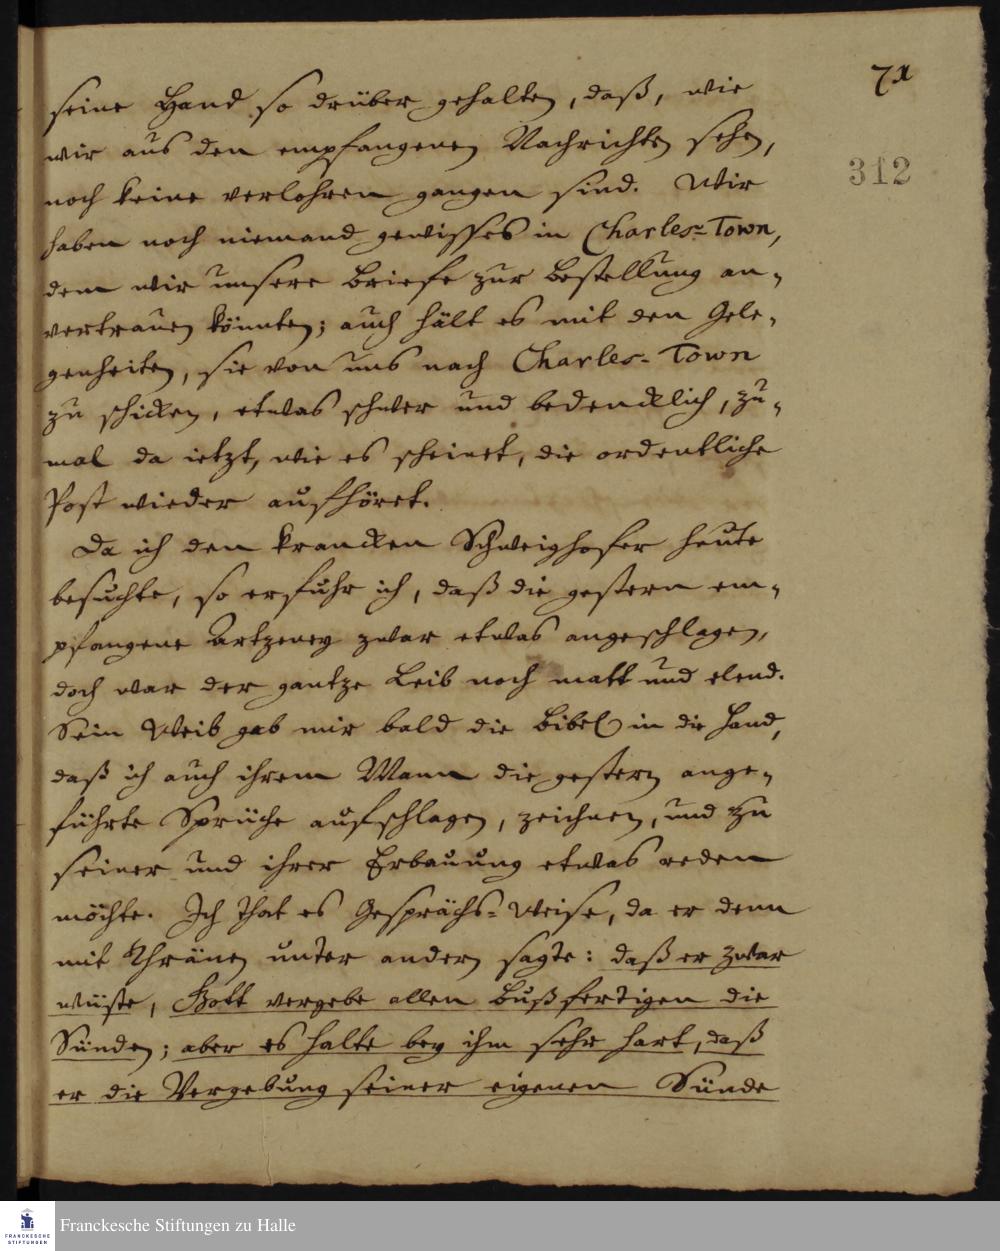 71
312
seine Hand so drüber gehalten, daß, wie
wir aus den empfangenen Nachrichten sehen,
noch keine verlohren gangen sind. Wir
haben noch niemand gewisses in Charles-Town,
dem wir unsere Briefe zur Bestellung an-
vertrauen könnten; auch hält es mit den Gele-
genheiten, sie von uns nach Charles-Town
zu schicken, etwas schwer und bedencklich, zu-
mal da ietzt, wie es scheinet, die ordentliche
Post wieder aufhöret.
Da ich den krancken Schweighofer heute
besuchte, so erfuhr ich, daß die gestern em-
pfangene Artzeney zwar etwas angeschlagen,
doch war der gantze Leib noch matt und elend.
Sein Weib gab mir bald die Bibel in die Hand,
daß ich auch ihrem Mann die gestern ange-
führte Sprüche aufschlagen, zeichnen, und zu
seiner und ihrer Erbauung etwas reden
möchte. Ich that es Gesprächs-Weise, da er denn
mit Thränen unter andern sagte: daß er zwar
wüste, Gott vergebe allen bußfertigen die
Sünden; aber es halte bey ihm sehr hart, daß
er die Vergebung seiner eigenen Sünde
FRANCKESCHE
STIFTUNGEN
Franckesche Stiftungen zu Halle